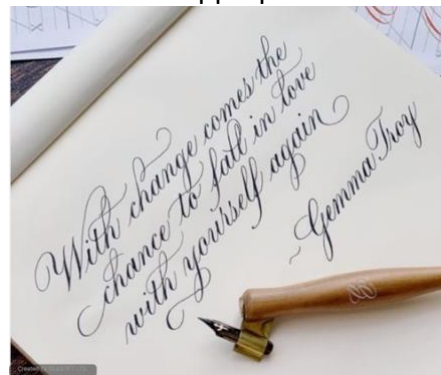 With change comes the
chance to fall in love
with yourself again
~Gemma Troy